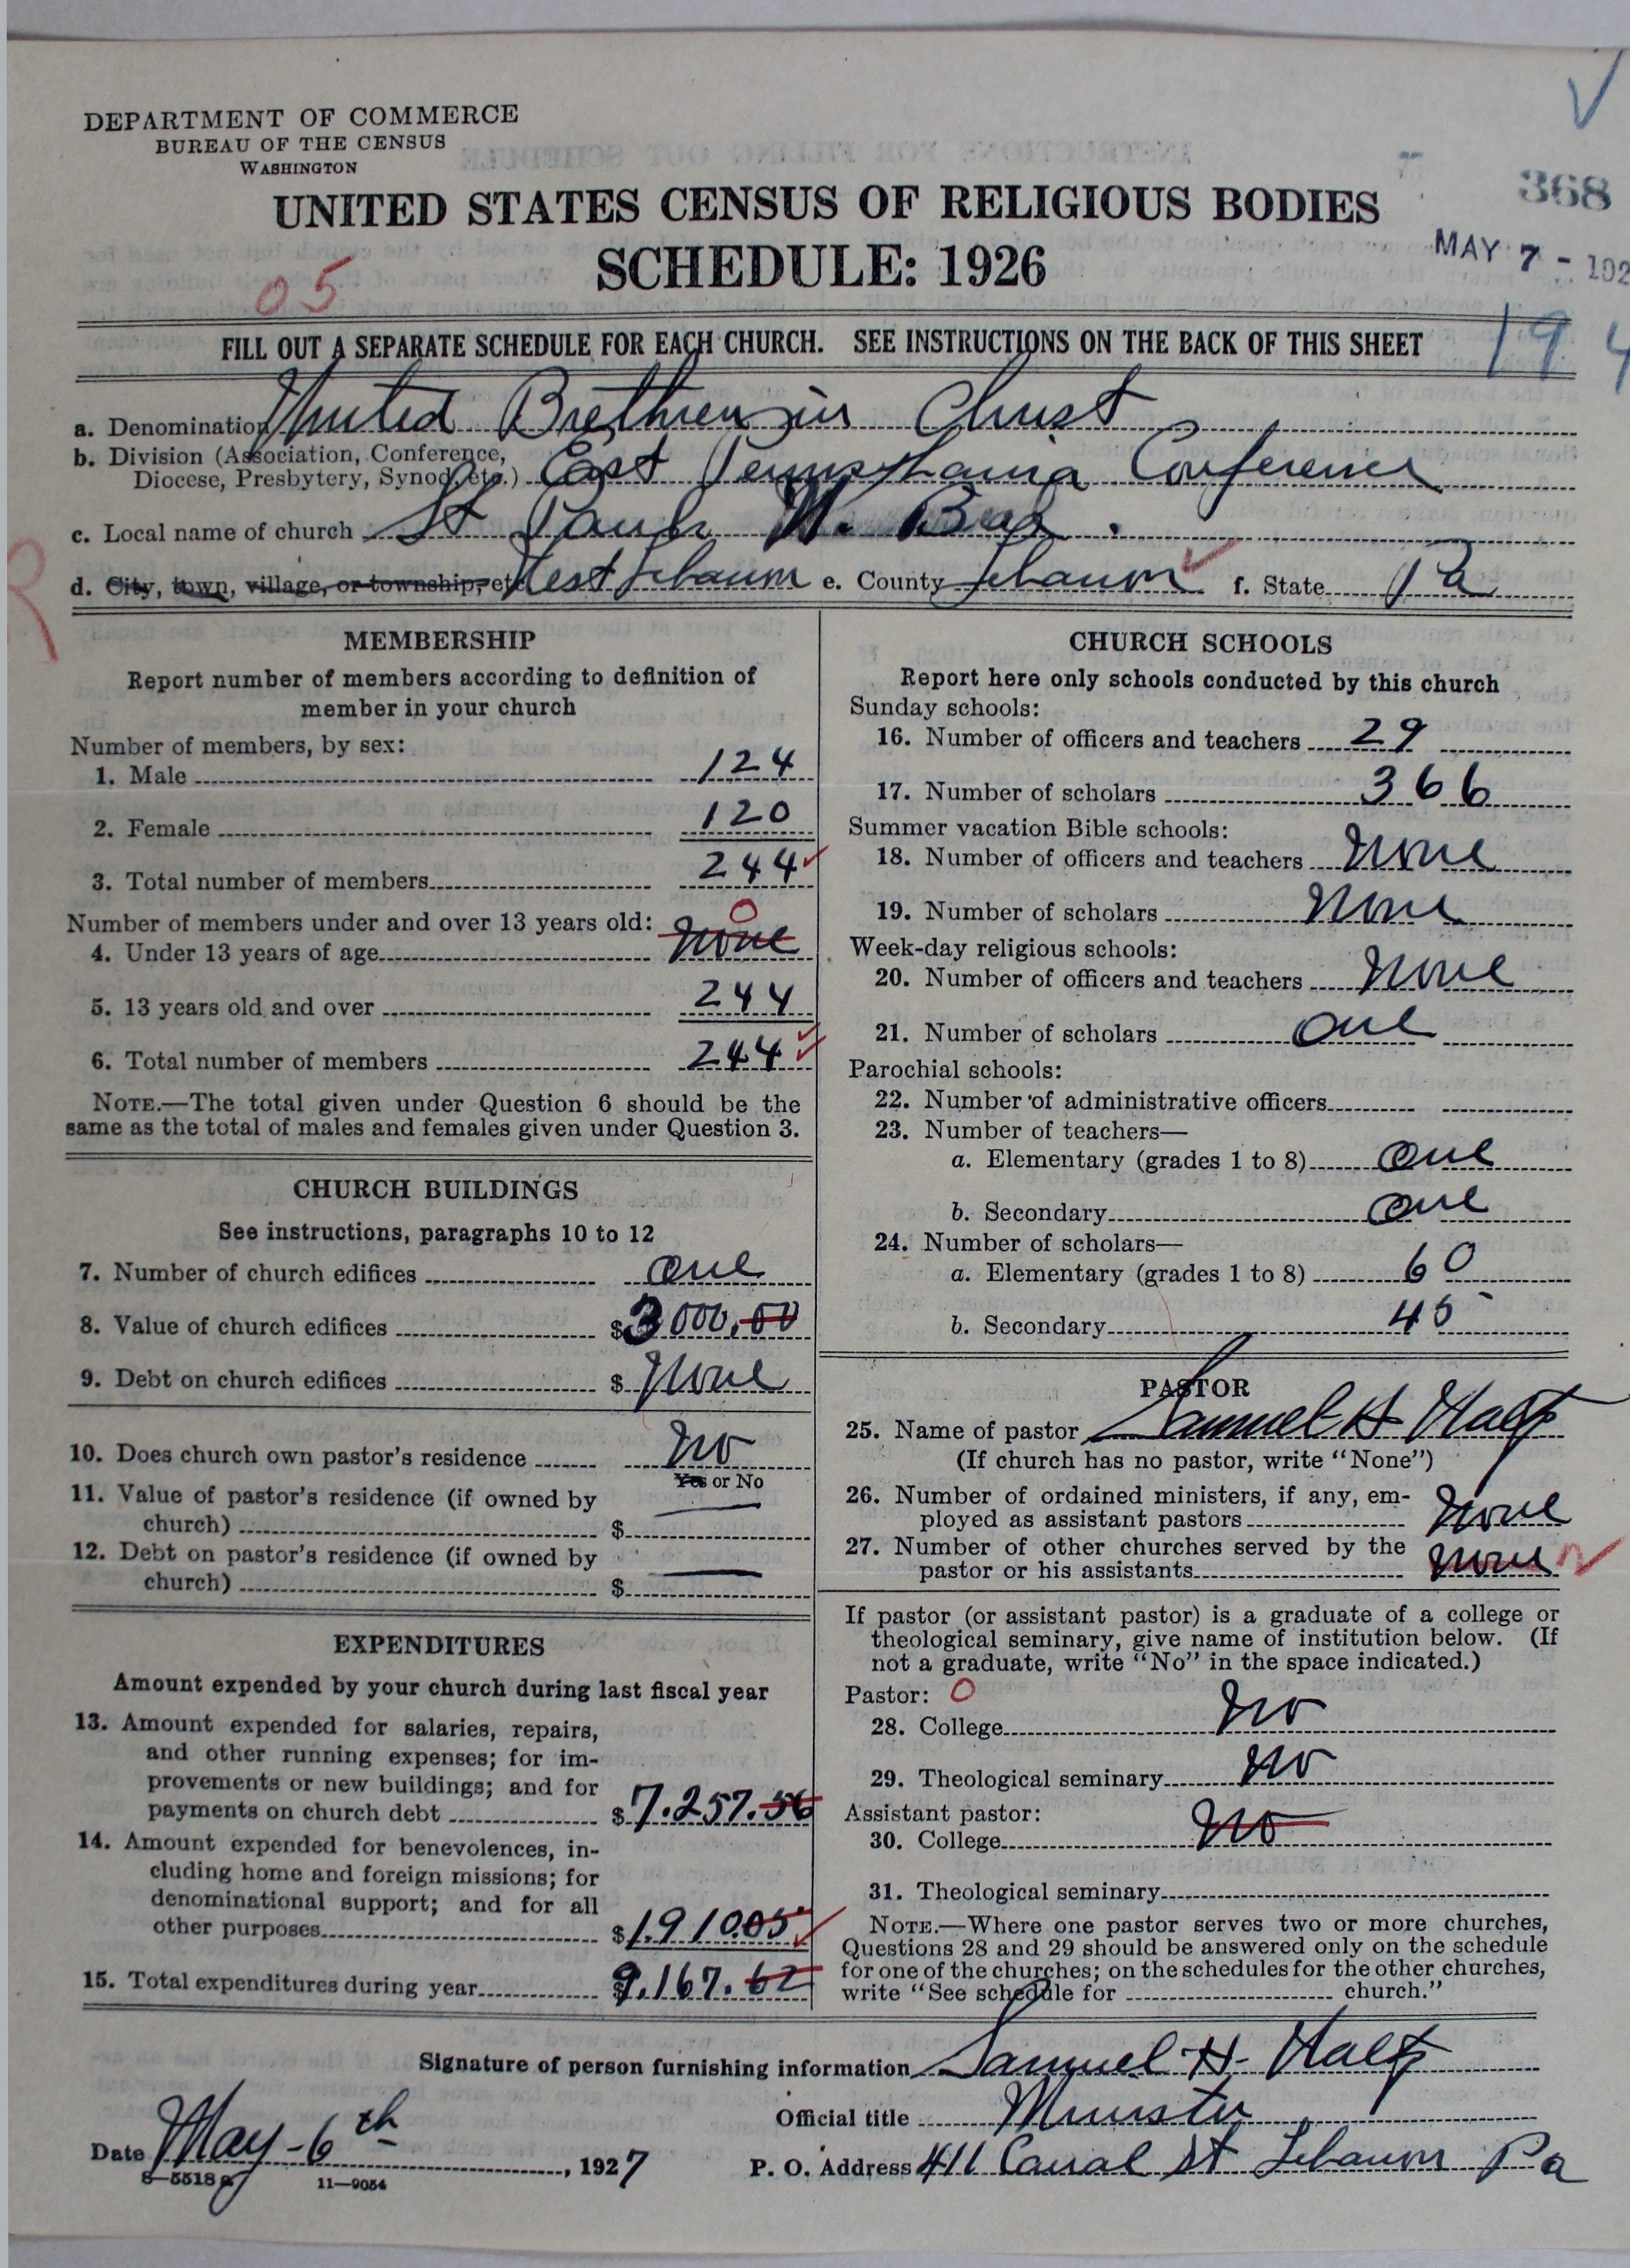 DEPARTMENT OF COMMERCE
BUREAU OF THE CENSUS
WASHINGTON
368
UNITED STATES CENSUS OF RELIGIOUS BODIES
SCHEDULE: 1926
MAY 7 - 192
05
194
FILL OUT A SEPARATE SCHEDULE FOR EACH CHURCH. SEE INSTRUCTIONS ON THE BACK OF THIS SHEET
a. Denomination United Brethren in Christ
b. Division (Association, Conference,
Diocese, Presbytery, Synod, etc.) East Pennsylvania Conference
c. Local name of church St Pauls U. B.
d. City, town, village, or township, etc. West Lebanon e. County Lebanon f. State Pa
R
MEMBERSHIP
Report number of members according to definition of
member in your church
Number of members, by sex:
1. Male 124
2. Female 120
3. Total number of members 244
Number of members under and over 13 years old: 0
4. Under 13 years of age None
5. 13 years old and over 244
6. Total number of members 244
NOTE.—The total given under Question 6 should be the
same as the total of males and females given under Question 3.
CHURCH BUILDINGS
See instructions, paragraphs 10 to 12
7. Number of church edifices one
8. Value of church edifices $3000.00
9. Debt on church edifices $ None
10. Does church own pastor's residence No
Yes or No
11. Value of pastor's residence (if owned by
church) $ —
12. Debt on pastor's residence (if owned by
church) $ —
EXPENDITURES
Amount expended by your church during last fiscal year
13. Amount expended for salaries, repairs,
and other running expenses; for im-
provements or new buildings; and for
payments on church debt $7.257.56
14. Amount expended for benevolences, in-
cluding home and foreign missions; for
denominational support; and for all
other purposes $1.910.05
15. Total expenditures during year $9.167.62
CHURCH SCHOOLS
Report here only schools conducted by this church
Sunday schools:
16. Number of officers and teachers 29
17. Number of scholars 366
Summer vacation Bible schools:
18. Number of officers and teachers None
19. Number of scholars None
Week-day religious schools:
20. Number of officers and teachers None
21. Number of scholars one
Parochial schools:
22. Number of administrative officers
23. Number of teachers—
a. Elementary (grades 1 to 8) one
b. Secondary one
24. Number of scholars—
a. Elementary (grades 1 to 8) 60
b. Secondary 45
PASTOR
25. Name of pastor Samuel H
(If church has no pastor, write "None")
26. Number of ordained ministers, if any, em-
ployed as assistant pastors None
27. Number of other churches served by the
pastor or his assistants None
If pastor (or assistant pastor) is a graduate of a college or
theological seminary, give name of institution below. (If
not a graduate, write "No" in the space indicated.)
Pastor: 0
28. College No
29. Theological seminary No
Assistant pastor:
30. College No
31. Theological seminary
NOTE.—Where one pastor serves two or more churches,
Questions 28 and 29 should be answered only on the schedule
for one of the churches; on the schedules for the other churches,
write "See schedule for church."
Signature of person furnishing information Samuel H.
Official title Minister
Date May - 6th, 1927
P. O. Address 411 Canal St Lebanon Pa
8—5518a 11—9054